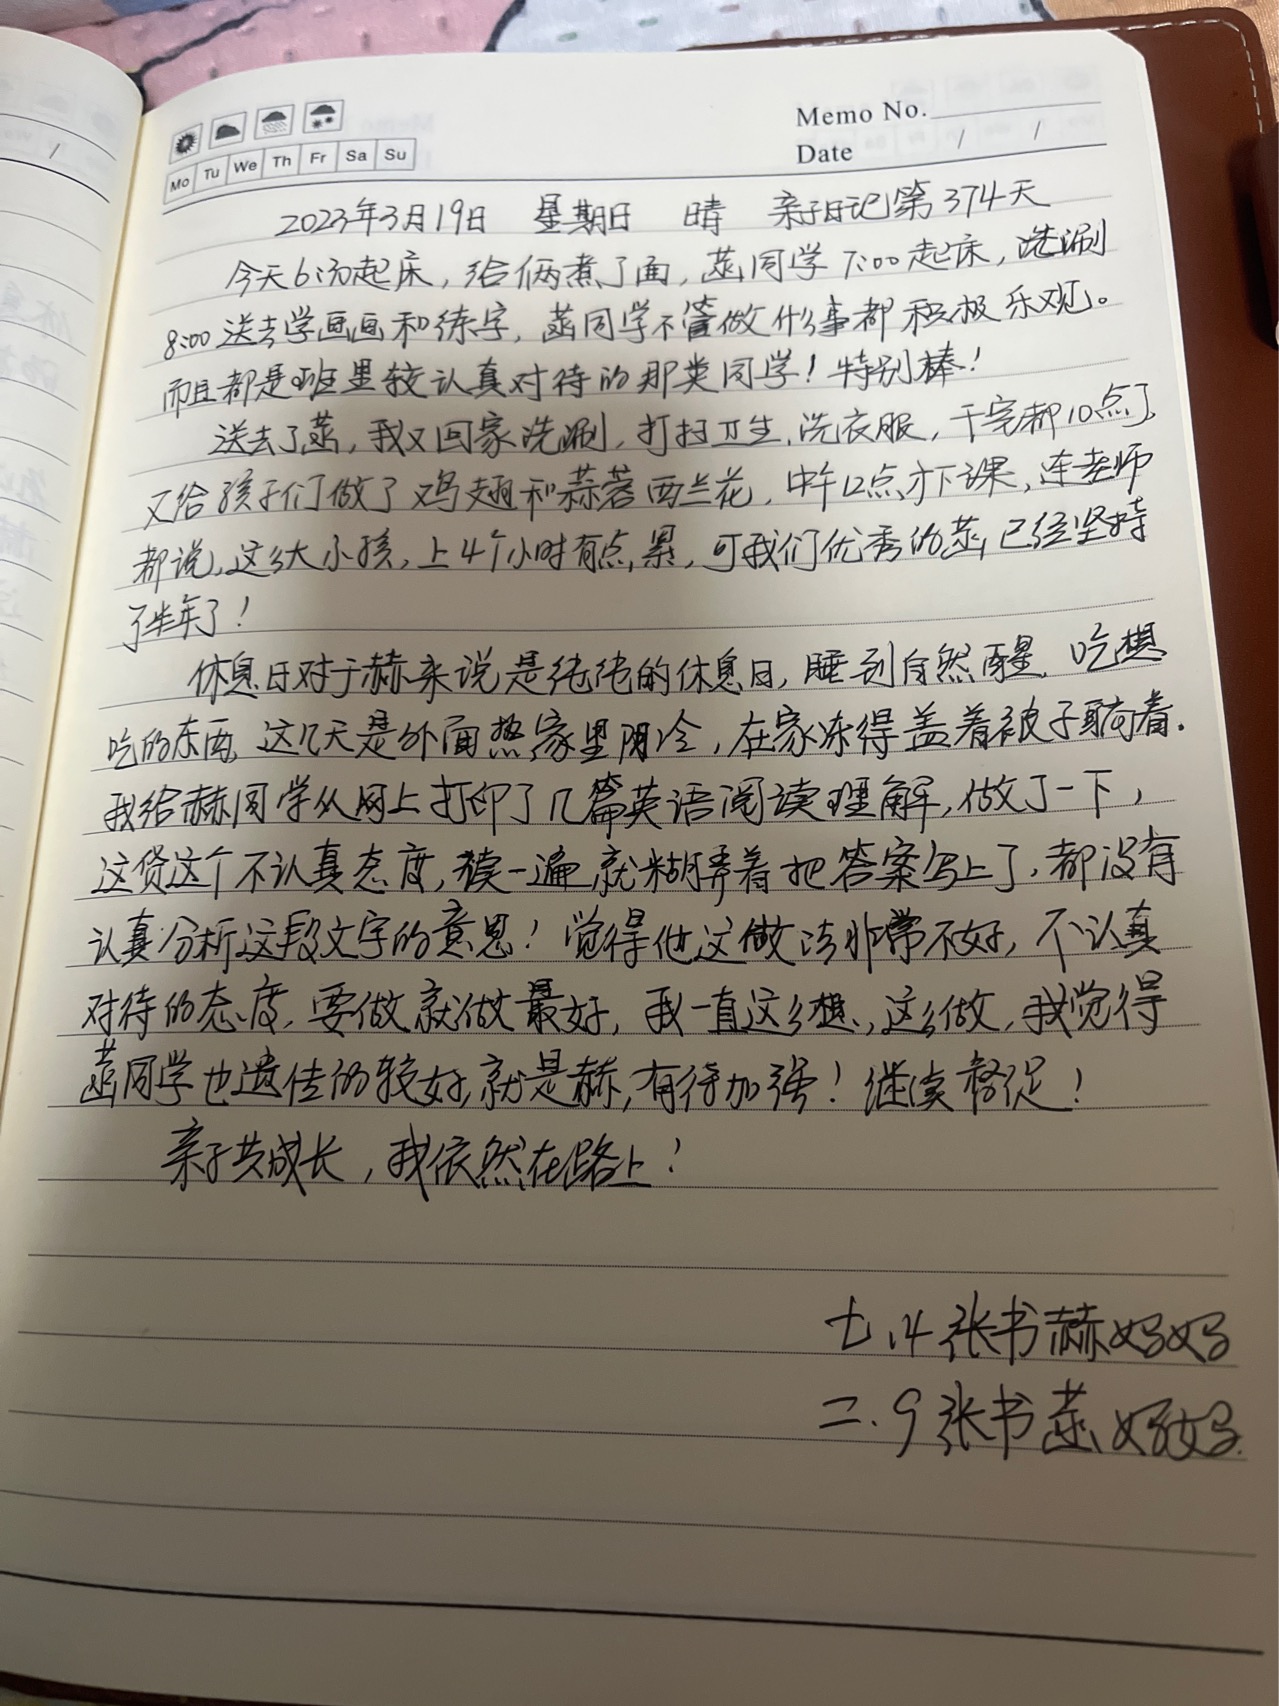 Memo No.
Mo Tu We Th Fr Sa Su
Date / /
2023年3月19日 星期日 晴 亲子日记第374天
今天6:30起床，给俩煮了面，菡同学7:00起床，洗涮
8:00送去学画画和练字，菡同学不管做什么事都积极乐观。
而且都是班里较认真对待的那类同学！特别棒！
送去了菡，我又回家洗涮，打扫卫生，洗衣服，干完都10点了，
又给孩子们做了鸡翅和蒜蓉西兰花，中午12点才下课，连老师
都说，这么大小孩，上4个小时有点累，可我们优秀的菡，已经坚持
了半年了！
休息日对于赫来说是纯纯的休息日，睡到自然醒，吃想
吃的东西，这几天是外面热家里阴冷，在家冻得盖着被子躺着.
我给赫同学从网上打印了几篇英语阅读理解，做了一下，
这货这个不认真态度，读一遍就糊弄着把答案写上了，都没有
认真分析这段文字的意思！觉得他这做法非常不好，不认真
对待的态度，要做就做最好，我一直这么想，这么做，我觉得
菡同学也遗传的较好，就是赫，有待加强！继续督促！
亲子共成长，我依然在路上！
七.4张书赫妈妈
二.9张书菡妈妈